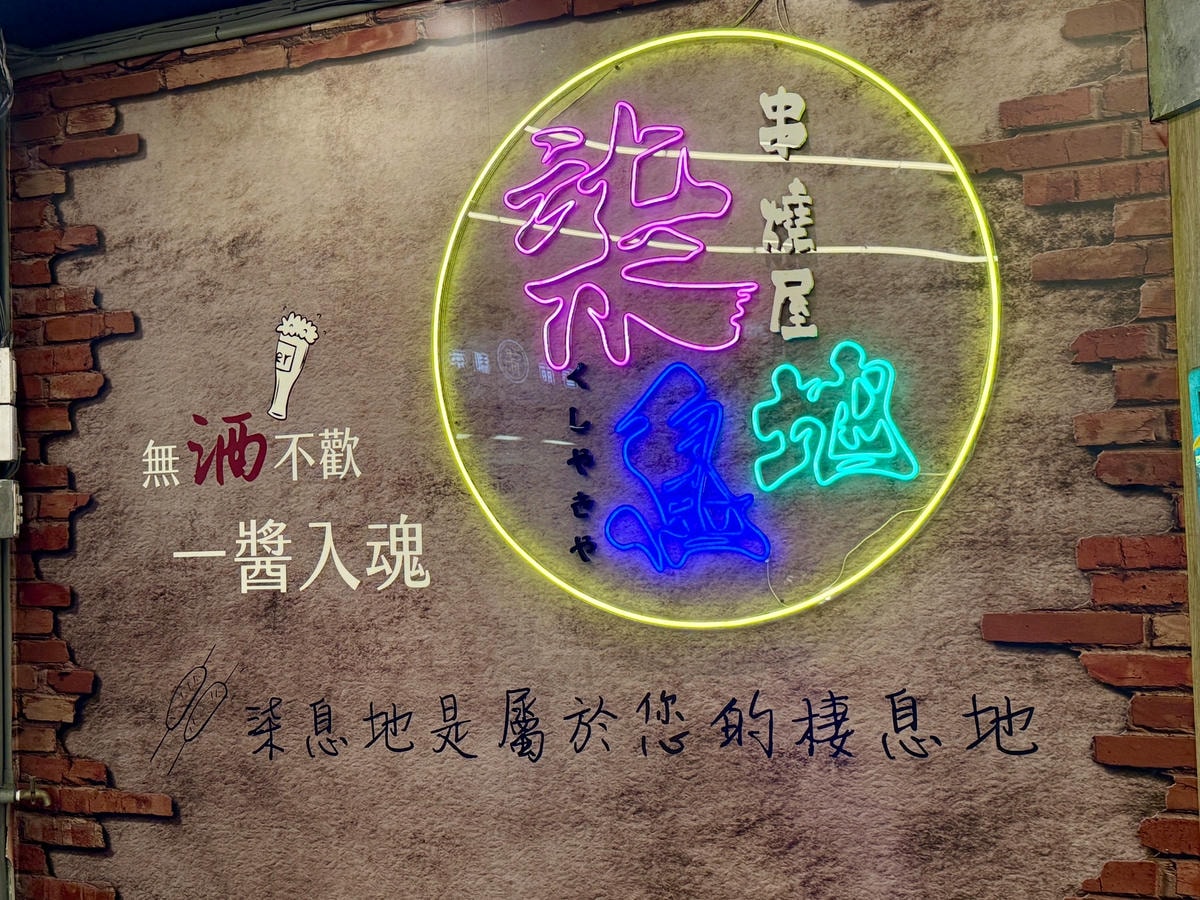 串燒屋
柒息地
くしやきや
er
無酒不歡
一醬入魂
柒息地是屬於您的棲息地